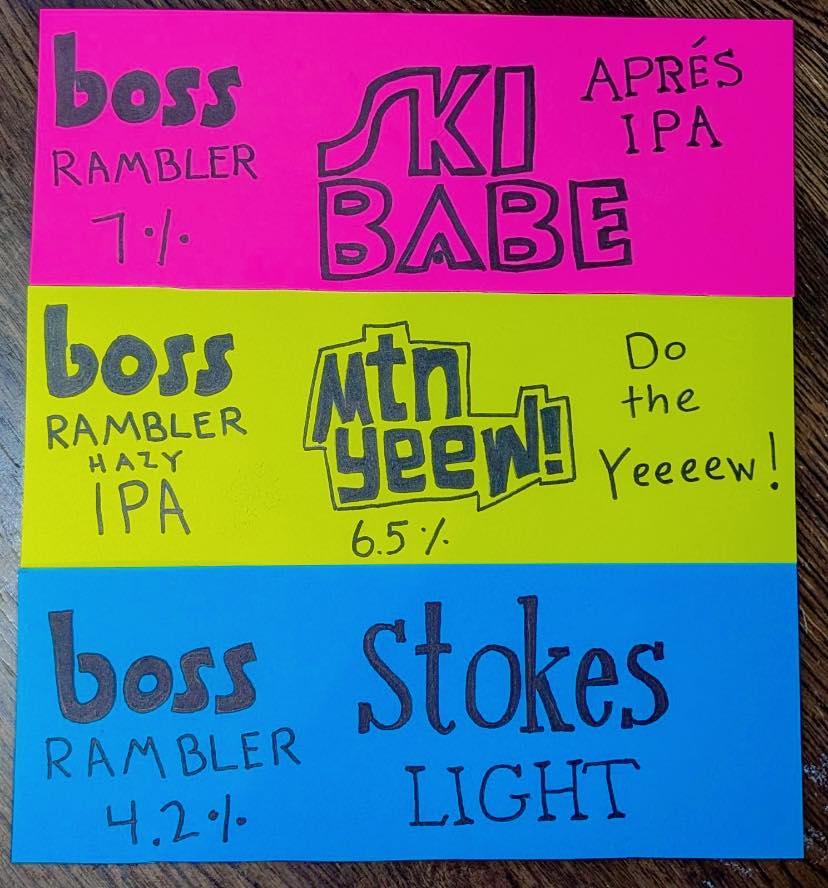 boss
RAMBLER
7%
SKI
BABE
APRÉS
IPA
boss
RAMBLER
HAZY
IPA
Mtn
yeew!
6.5%
Do
the
Yeeeew!
boss
RAMBLER
4.2%
Stokes
LIGHT